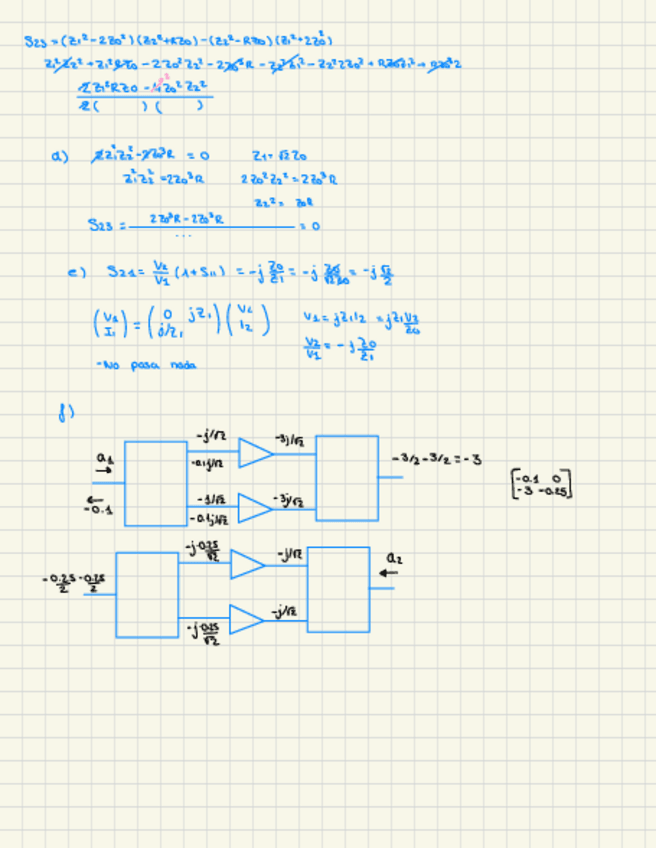 S23 = (Z1² - 2Z0²)(Z2² + RZ0) - (Z2² - RZ0)(Z1² + 2Z0²)
Z1²Z2² + Z1²RZ0 - 2Z0²Z2² - 2Z0³R - Z2²Z1² - Z2²2Z0² + RZ0Z1² + RZ0³2
2Z1²RZ0 - 4Z0²Z2²
2( )( )
d) 2Z1²Z2² - 2Z0³R = 0 Z1 = √2 Z0
Z1²Z2² = 2Z0³R 2Z0²Z2² = 2Z0³R
Z2² = Z0R
S23 = 2Z0³R - 2Z0³R / ... = 0
e) S21 = V2/V1 (1 + S11) = -j Z0/Z1 = -j Z0/√2Z0 = -j √2/2
(V1 I1) = (0 jZ1 j/Z1) (V2 I2) V1 = jZ1I2 = jZ1 V2/Z0
V2/V1 = -j Z0/Z1
-No pasa nada
f)
a1 -j/√2 -3j/√2
-0.1j/√2 -3/2 - 3/2 = -3
-0.1 -j/√2 -3j/√2 [-0.1 0
-3 -0.25]
-0.1j/√2
-j 0.25/√2 -j/√2 a2
-0.25/2 -0.25/2
-j 0.25/√2 -j/√2